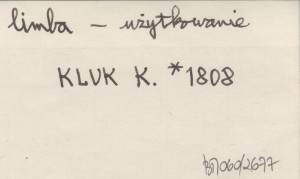 limba – użytkowanie
KLUK K. *1808
BN/060/2677